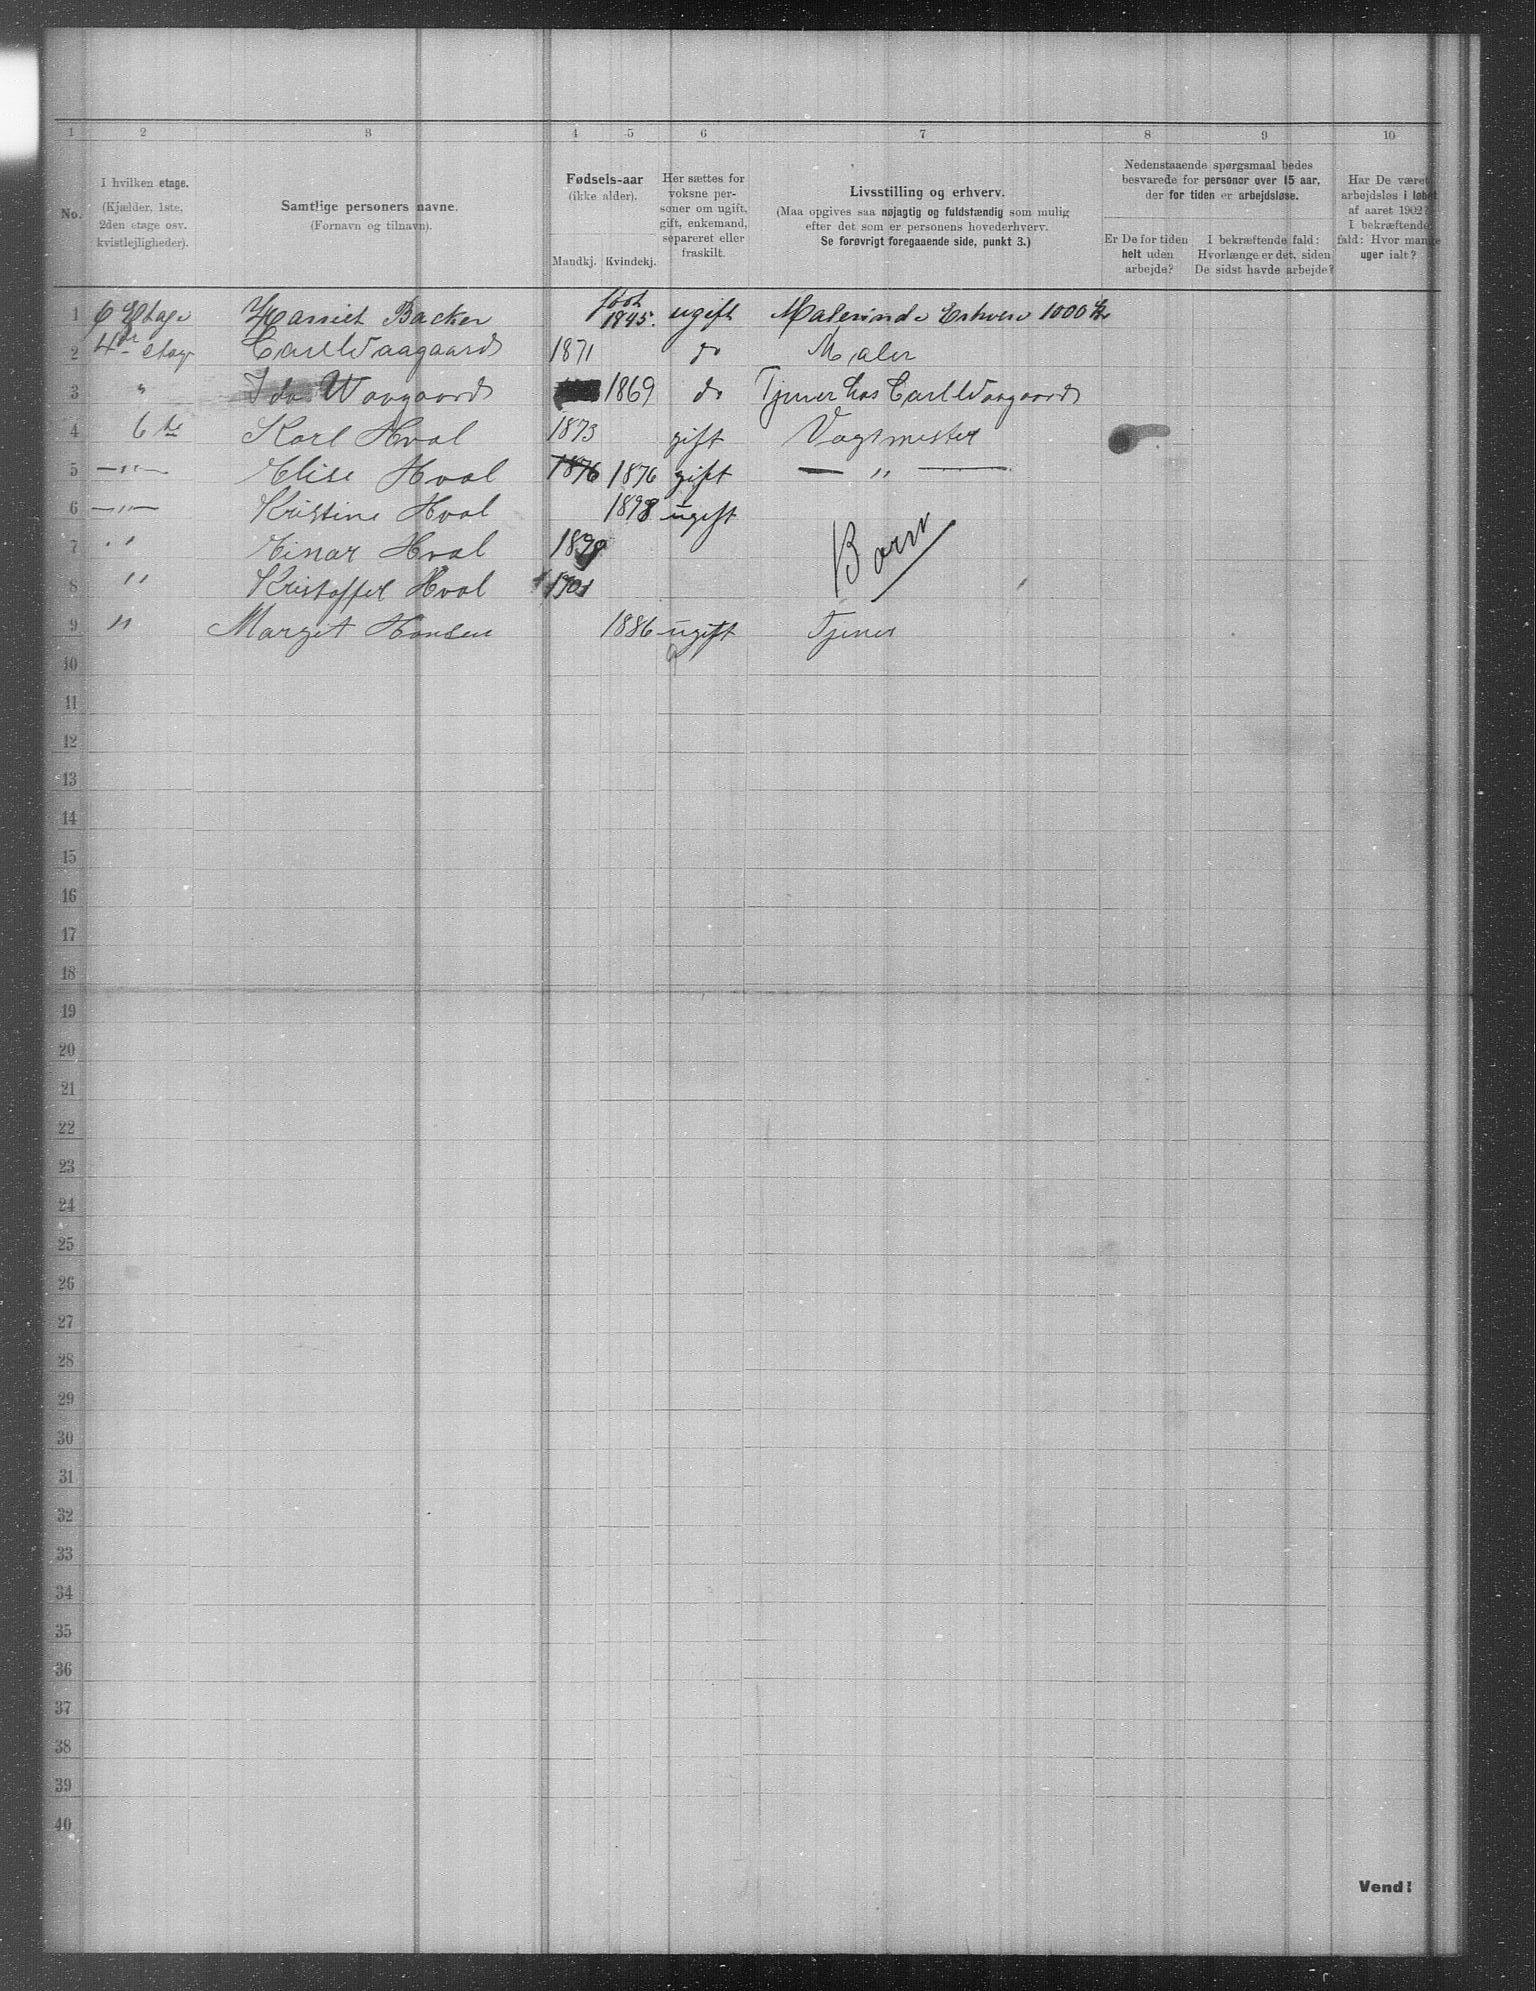 1 2 3 4 5 6 7 8 9 10
No.
I hvilken etage.
(Kjælder, 1ste,
2den etage osv.
kvistlejligheder).
Samtlige personers navne.
(Fornavn og tilnavn).
Fødsels-aar
(ikke alder).
Mandkj. Kvindekj.
Her sættes for
voksne per-
soner om ugift,
gift, enkemand,
separeret eller
fraskilt.
Livsstilling og erhverv.
(Maa opgives saa nøjagtig og fuldstændig som mulig
efter det som er personens hovederhverv.
Se forøvrigt foregaaende side, punkt 3.)
Nedenstaaende spørgsmaal bedes
besvarede for personer over 15 aar,
der for tiden er arbejdsløse.
Er De for tiden
helt uden
arbejde?
I bekræftende fald:
Hvorlænge er det, siden
De sidst havde arbejde?
Har De været
arbejdsløs i løbet
af aaret 1902?
I bekræftende
fald: Hvor mange
uger ialt?
1 6 Etage Harriet Backer født 1845. ugift Malerinde Erhverv 1000 Kr
2 4de etage Carl Waagaard 1871 do Maler
3 " Ida Waagaard 1869 do Tjener hos Carl Waagaard
4 6te Karl Hval 1873 gift Vagtmester
5 —"— Elise Hval 1876 1876 gift — " —
6 —"— Kristine Hval 1898 ugift
7 " Einar Hval 1899 Børn
8 " Kristoffer Hval 1901
9 " Margit Hansen 1886 ugift Tjener
10
11
12
13
14
15
16
17
18
19
20
21
22
23
24
25
26
27
28
29
30
31
32
33
34
35
36
37
38
39
40
Vend!